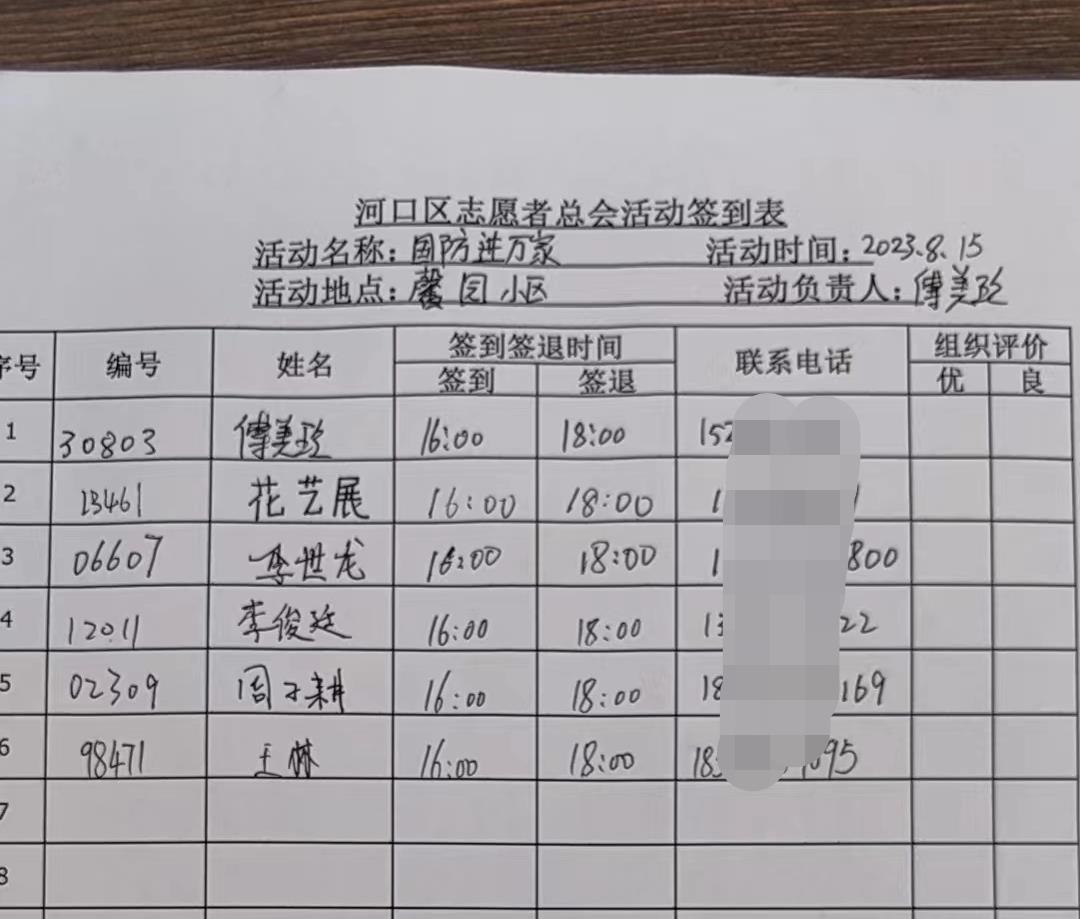 河口区志愿者总会活动签到表
活动名称：国防进万家 活动时间：2023.8.15
活动地点：馨园小区 活动负责人：傅美玲
序号 编号 姓名 签到签退时间 联系电话 组织评价
签到 签退 优 良
1 30803 傅美玲 16:00 18:00 152
2 13461 花艺展 16:00 18:00 1
3 06607 李世龙 16:00 18:00 1 800
4 12011 李俊廷 16:00 18:00 13 22
5 02309 周子耕 16:00 18:00 18 169
6 98471 王林 16:00 18:00 183 095
7
8